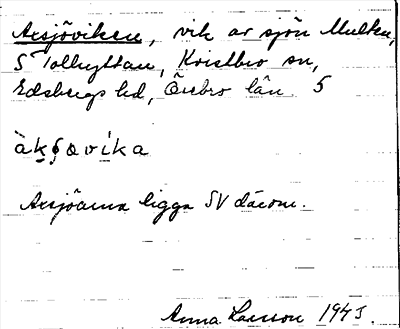 Axsjöviken, vik av sjön Multen,
S Tolhyttan, Kvistbro sn,
Edsbergs hd, Örebro län. 5
àkʂøvíka
Axsjöarna ligga SV därom.
Anna Larsson 1945.